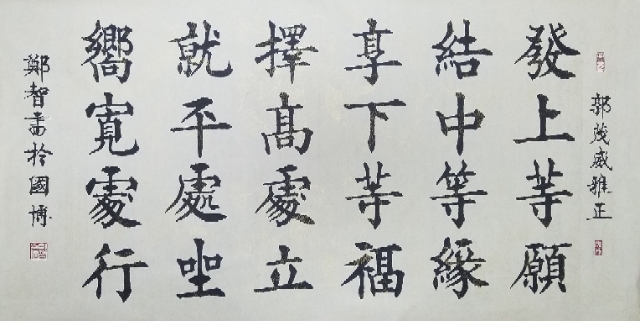 郭茂威雅正
發上等願
結中等緣
享下等福
擇高處立
就平處坐
嚮寬處行
鄭智書於國博